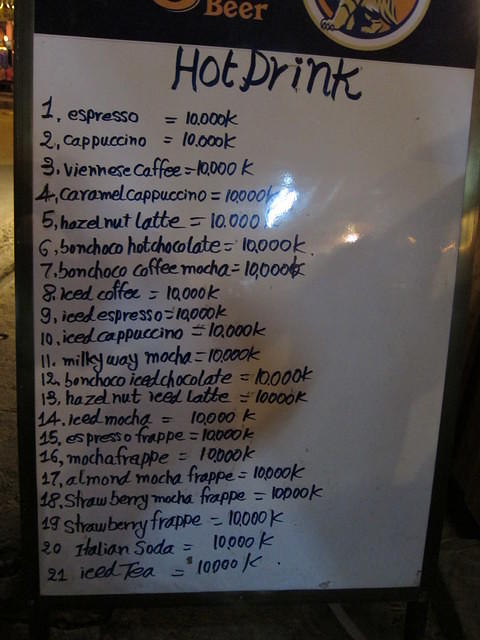 Beer
Hot Drink
1, espresso = 10.000K
2, cappuccino = 10.000K
3, viennese caffee = 10,000 K
4, caramel cappuccino = 10,000K
5, hazel nut latte = 10.000
6, bonchoco hotchocolate = 10,000K.
7, bonchoco coffee mocha = 10,000K
8. iced coffee = 10,000K
9, iced espresso = 10,000K
10, iced cappuccino = 10,000K
11. milky way mocha = 10,000K
12. bonchoco iced chocolate = 10.000K
13, hazel nut iced Latte = 10000K
14. iced mocha = 10,000 K
15, espresso frappe = 10,000K
16, mocha frappe = 10,000K
17, almond mocha frappe = 10,000K
18, Straw berry mocha frappe = 10,000K
19 Strawberry frappe = 10,000K
20 Italian Soda = 10,000 K
21 iced Tea = 10000 K .